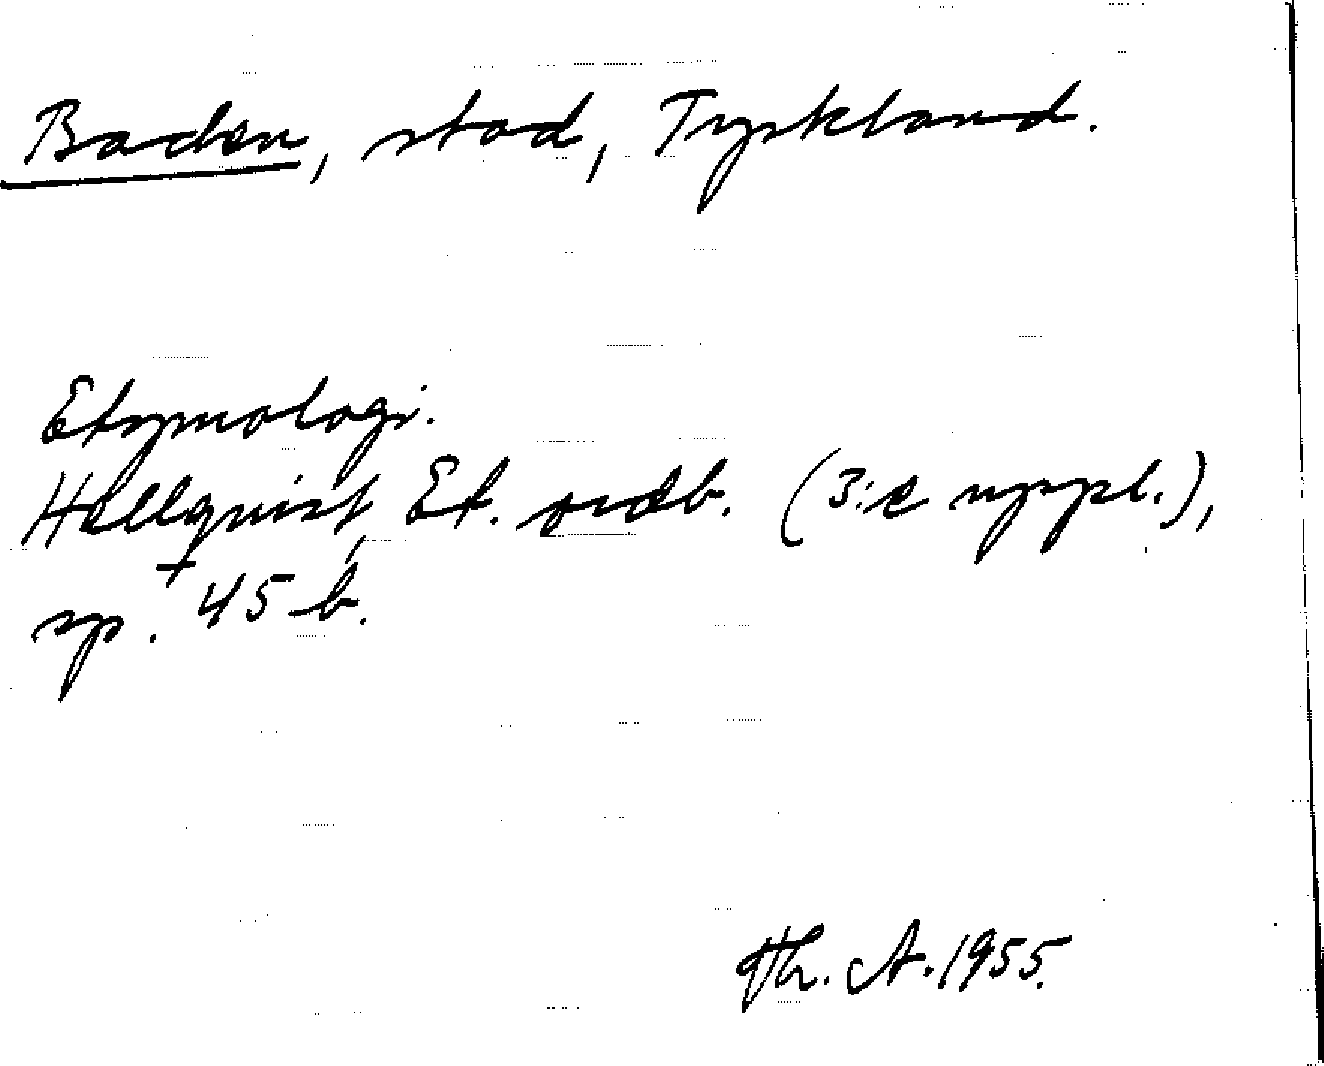 Baden, stad, Tyskland.
Etymologi.
Hellquist, Et. ordb. (3:e uppl.),
sp. 45 b.
Th. A. 1955.